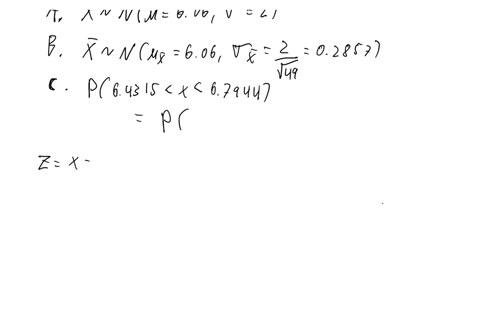 A. X ~ N(μ = 6.06, σ = 2)
B. X̄ ~ N(μx̄ = 6.06, σx̄ = 2/√49 = 0.2857)
C. P(6.4315 < x < 6.7944)
= P(
Z = x -